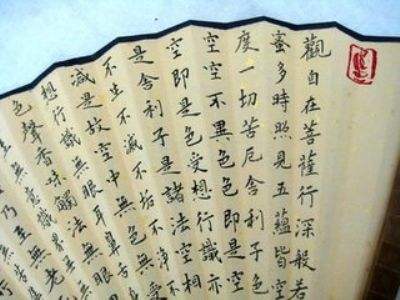 觀自在菩薩行深般若
蜜多時照見五蘊皆空
度一切苦厄舍利子色
空空不異色色即是空
空即是色受想行識亦
是舍利子是諸法空相
不生不滅不垢不淨
減是故空中無色無
想行識無眼耳鼻舌
色聲香味觸法無
無意識界無
乃至無老